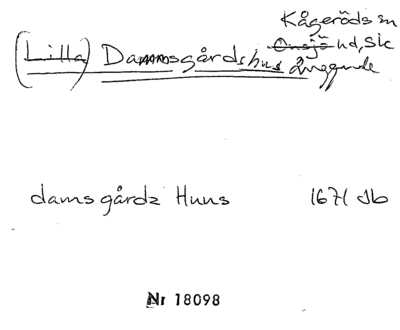 Kågeröds sn
(Lilla) Dammsgårdshus Onsjö hd, Sk
damsgårdz Huus 1671 Jb
Nr 18098